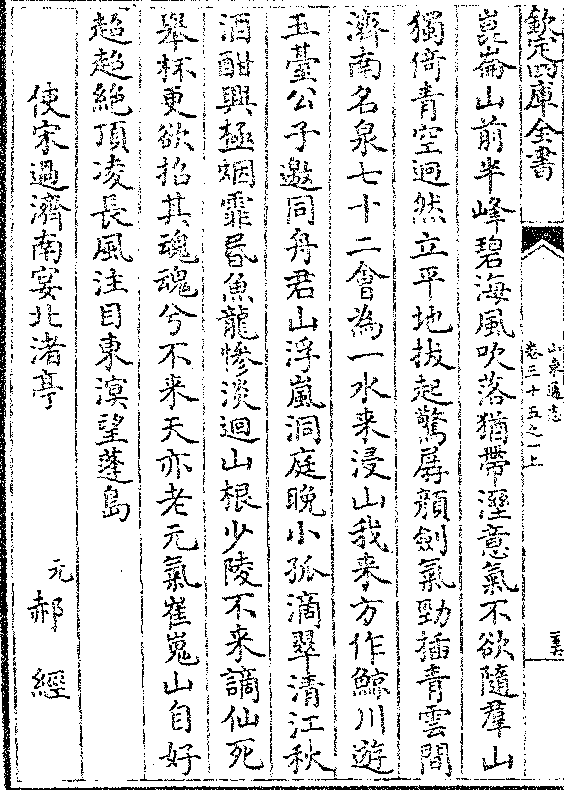 欽定四庫全書
山東通志
卷三十五之一上
崑崙山前半峰碧海風吹落猶帶溼意氣不欲隨羣山
獨倚青空迥然立平地拔起驚孱顔劍氣勁插青雲間
濟南名泉七十二會為一水来浸山我来方作鯨川遊
玉臺公子邀同舟君山浮嵐洞庭晚小孤滴翠清江秋
酒酣興極烟霏昬魚龍慘淡迴山根少陵不来謫仙死
舉杯更欲招其魂魂兮不来天亦老元氣崔嵬山自好
超超絶頂凌長風注目東溟望蓬島
使宋過濟南宴北渚亭
元
郝經